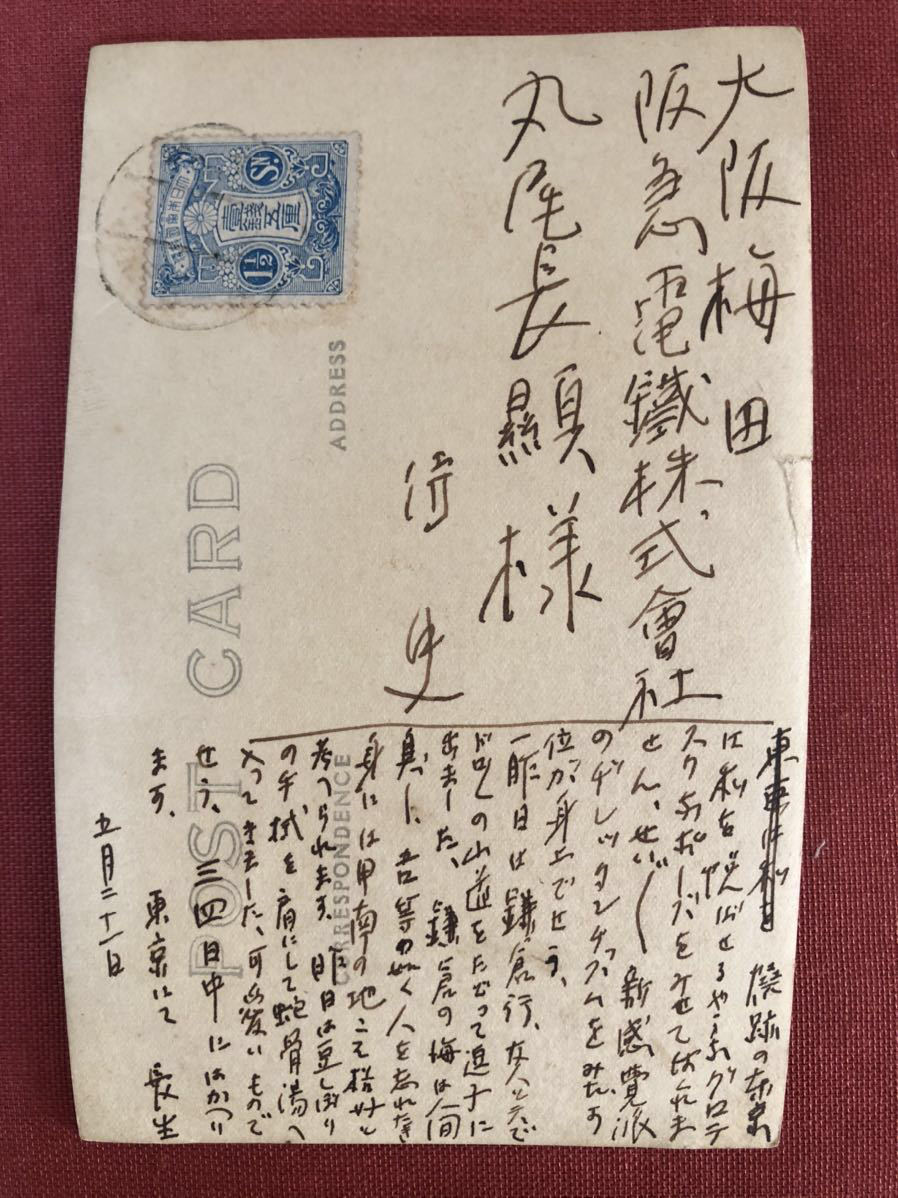 大阪梅田
阪急電鐵株式會社
丸尾長顕様
侍史
焼跡の東京
は私を悦ばせるやうなグロテ
スクなポーズをみせてはくれま
せん、せい〲新感覚派
のヂレッタンチズムをみたす
位が身上でせう、
一昨日は鎌倉行、友人と二人で
ドロの山道をたどって逗子に
出ました、鎌倉の海は人間
臭し、吾等の如く人を忘れたき
身には甲南の地こそ格好と
考へられます、昨日は豆しぼり
の手拭を肩にして蛇骨湯へ
入ってきました、可愛いもので
せう、三四日中にはかへり
ます、東京にて 長生
五月二十一日
POST CARD
ADDRESS
CORRESPONDENCE
大日本帝國郵便
壹錢五厘
1½ Sn.